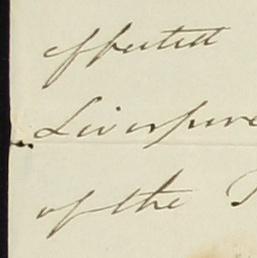 effected
Liverpool
of the